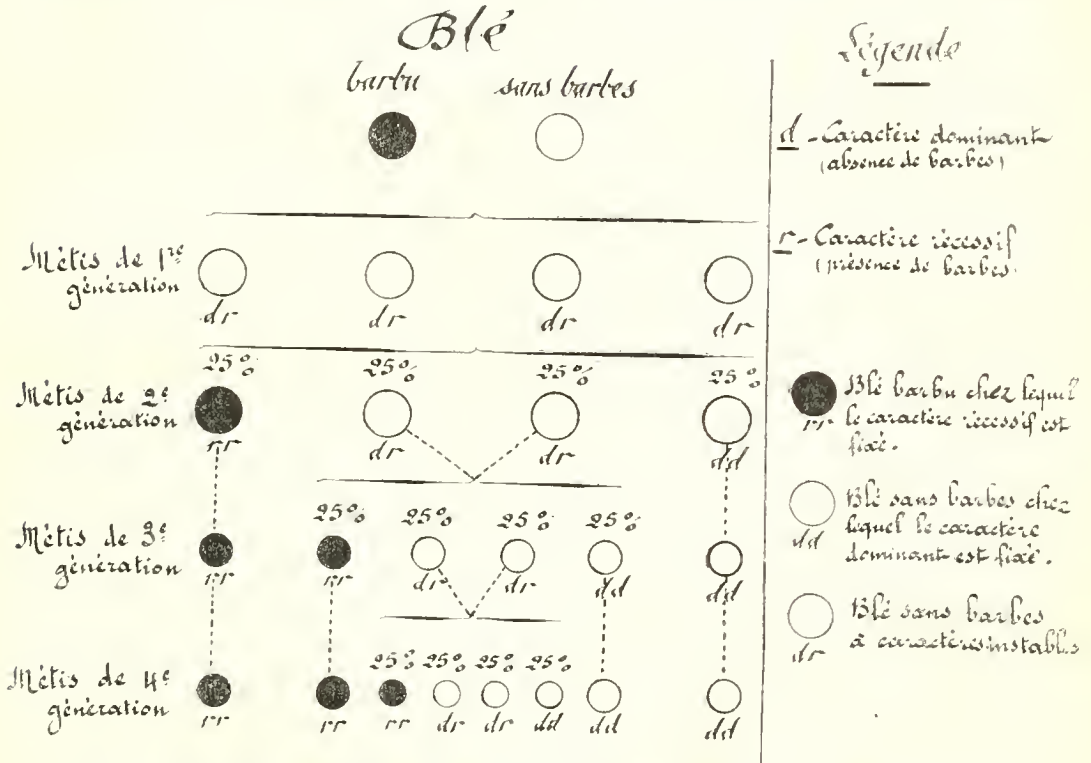 Blé
barbu sans barbes
Métis de 1re
génération
dr dr dr dr
25% 25% 25% 25%
Métis de 2e
génération
rr dr dr dd
25% 25% 25% 25%
Métis de 3e
génération
rr rr dr dr dd dd
25% 25% 25% 25%
Métis de 4e
génération
rr rr rr dr dr dd dd dd
Légende
d - Caractère dominant
(absence de barbes)
r - Caractère récessif
(présence de barbes.
Blé barbu chez lequel
rr le caractère récessif est
fixé.
Blé sans barbes chez
lequel le caractère
dd dominant est fixé.
Blé sans barbes
dr à caractères instables